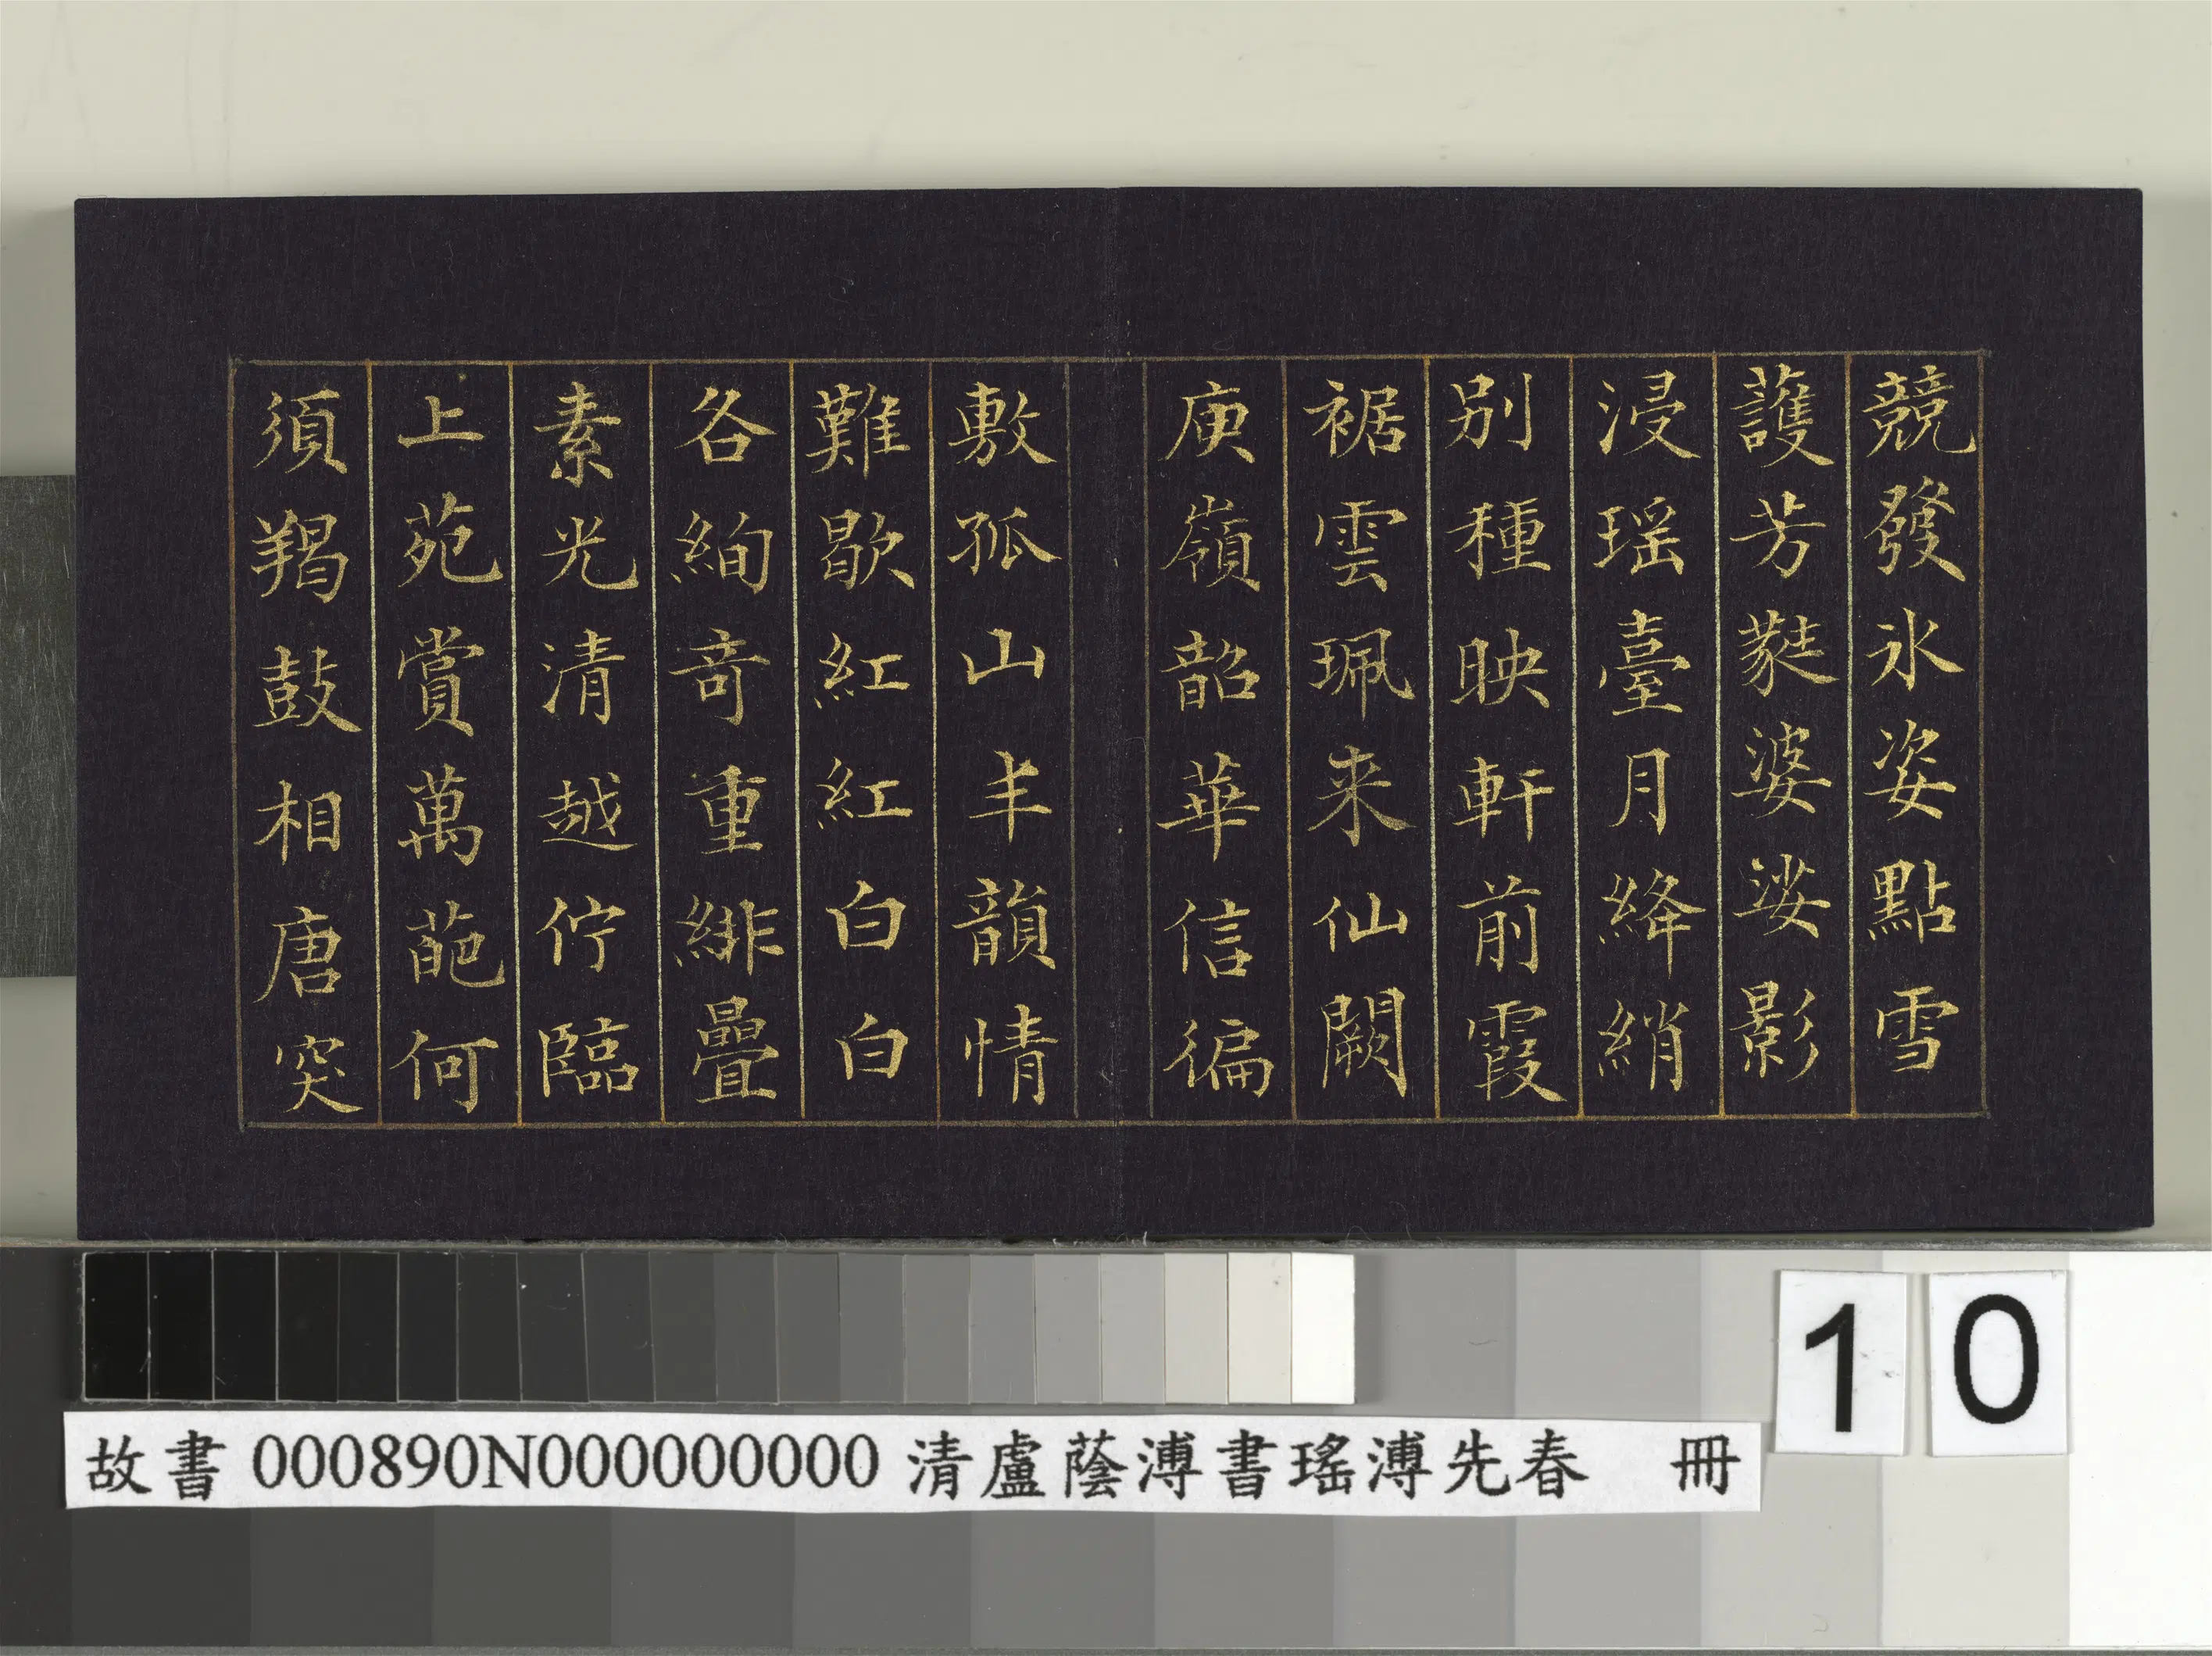 競發冰姿點雪
護芳蕤婆娑影
浸瑶臺月絳綃
别種映軒前霞
裾雲珮来仙闕
庾嶺韶華信徧
敷孤山丰韻情
難歇紅紅白白
各絢竒重緋疊
素光清越佇臨
上苑賞萬葩何
須羯鼓相唐突
10
故書 000890N000000000 清盧蔭溥書瑤溥先春 冊